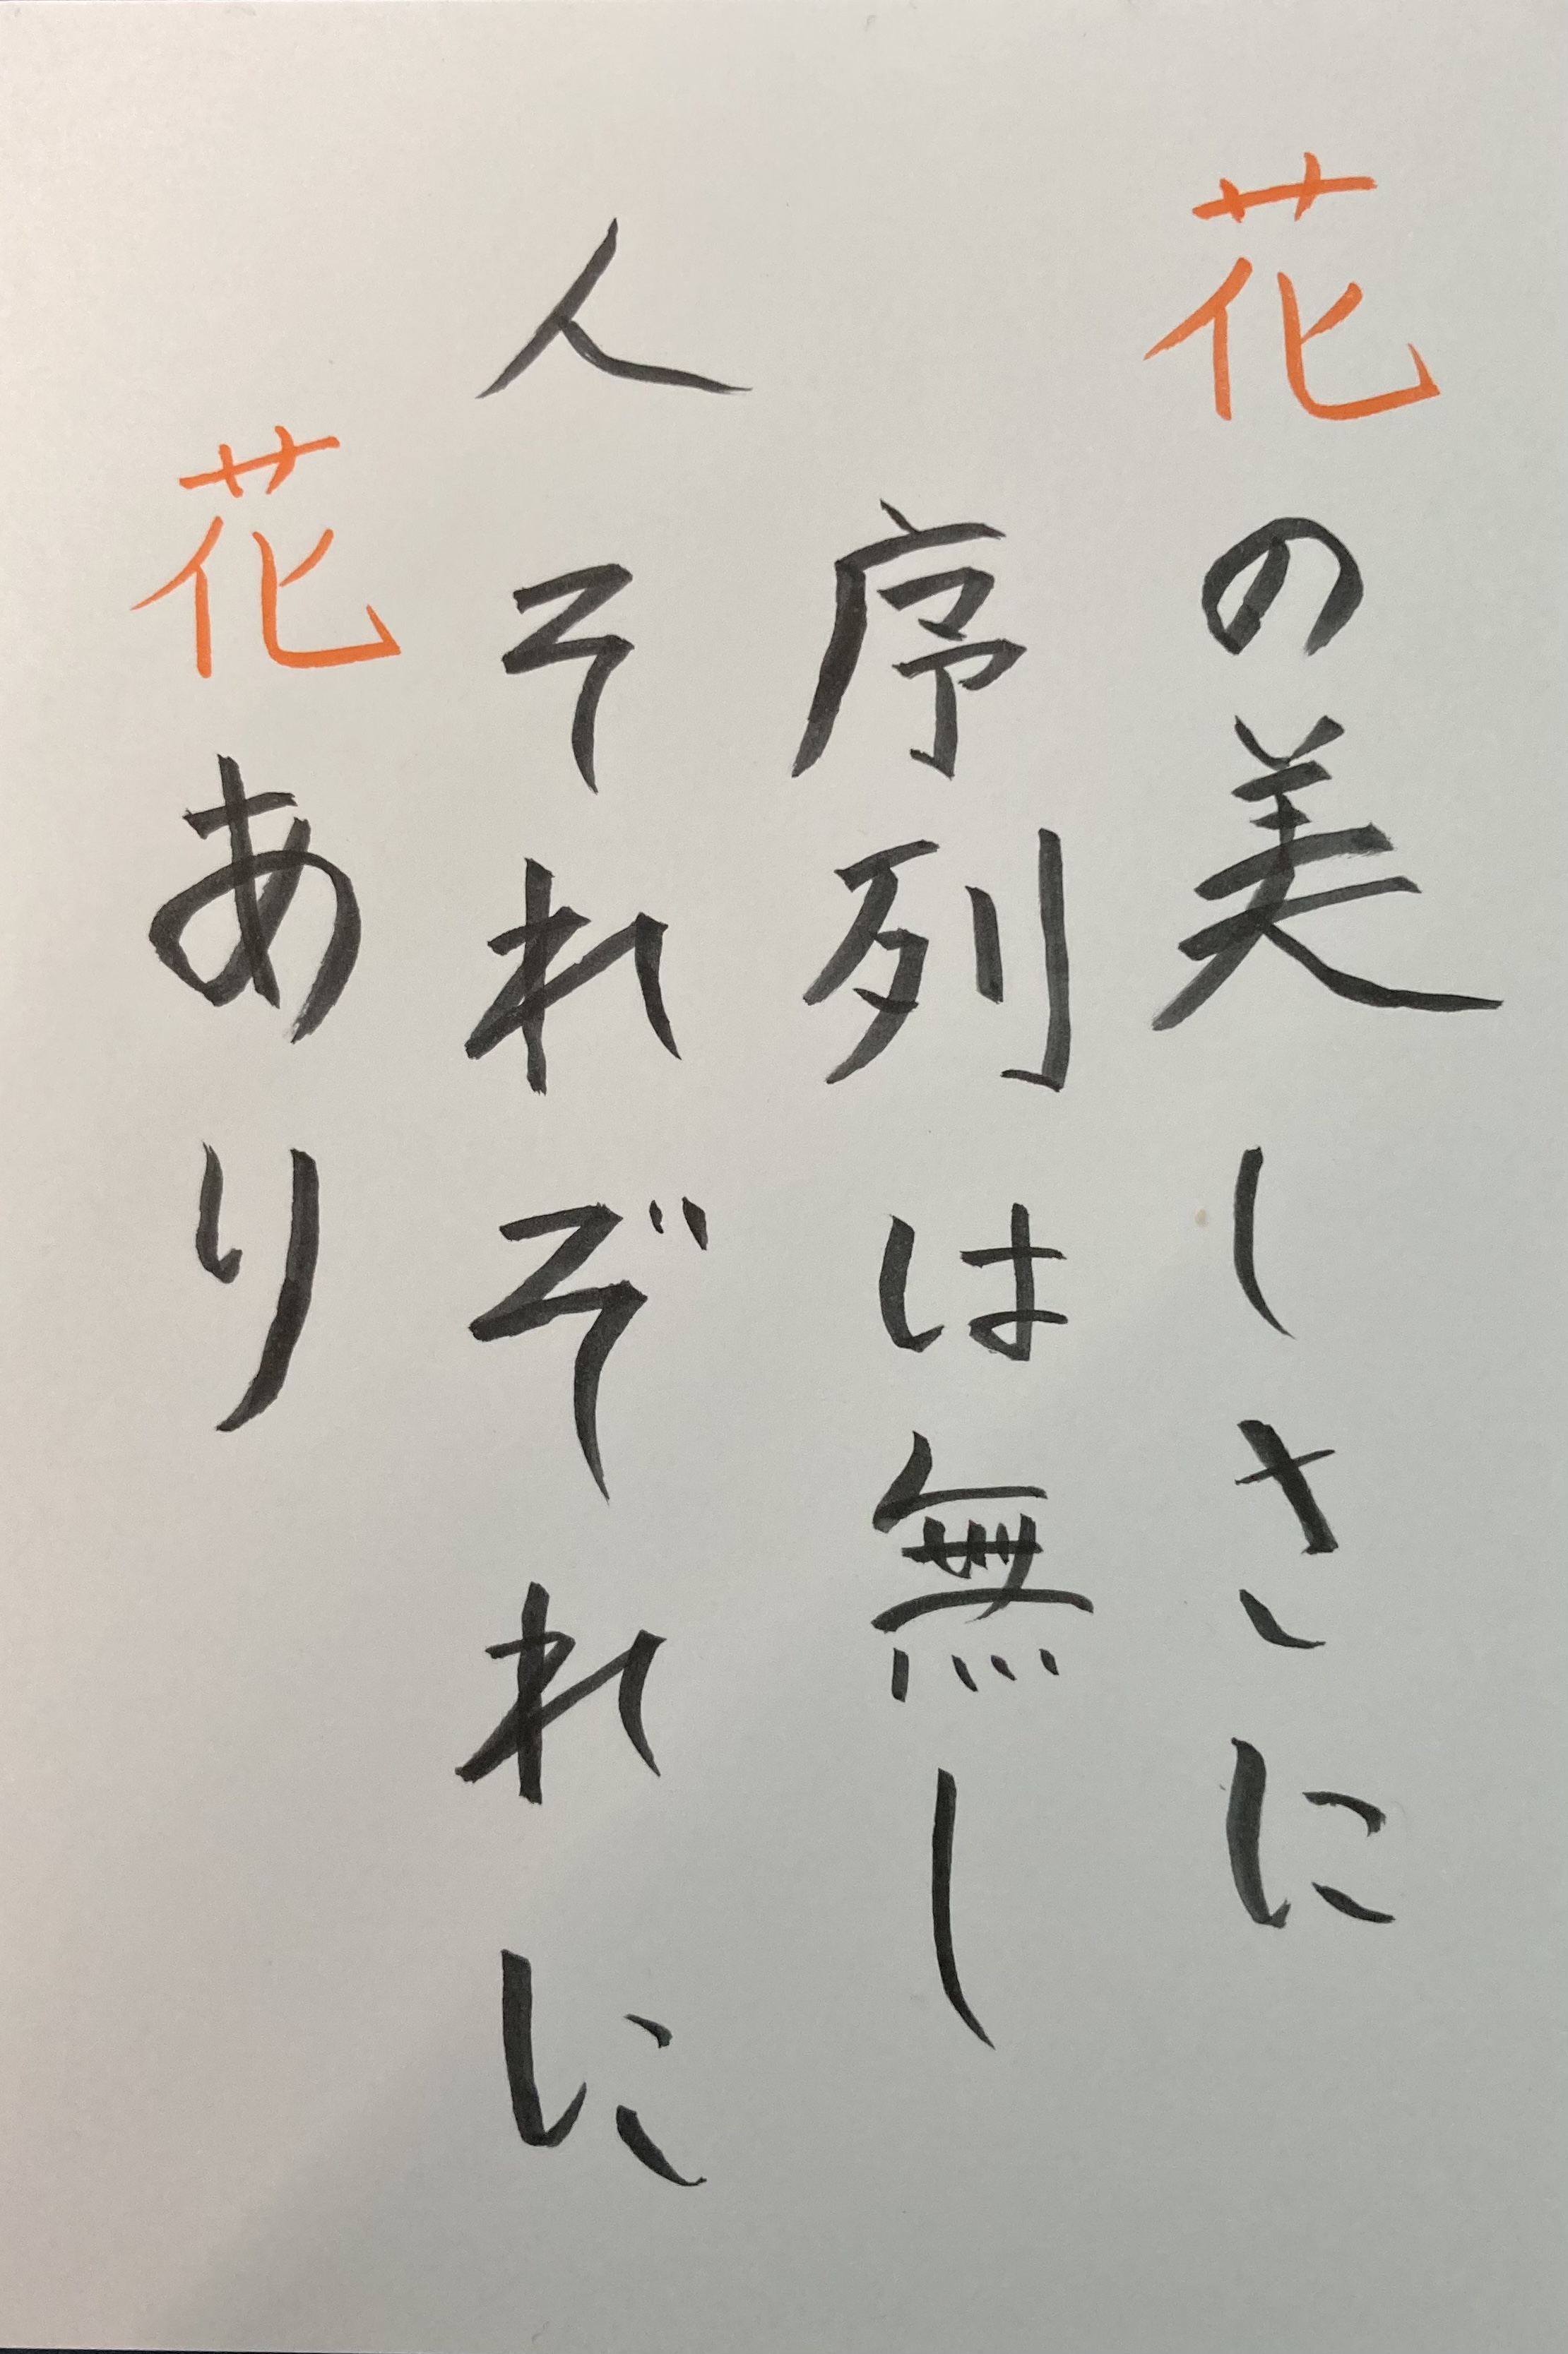 花の美しさに
序列は無し
人それぞれに
花あり